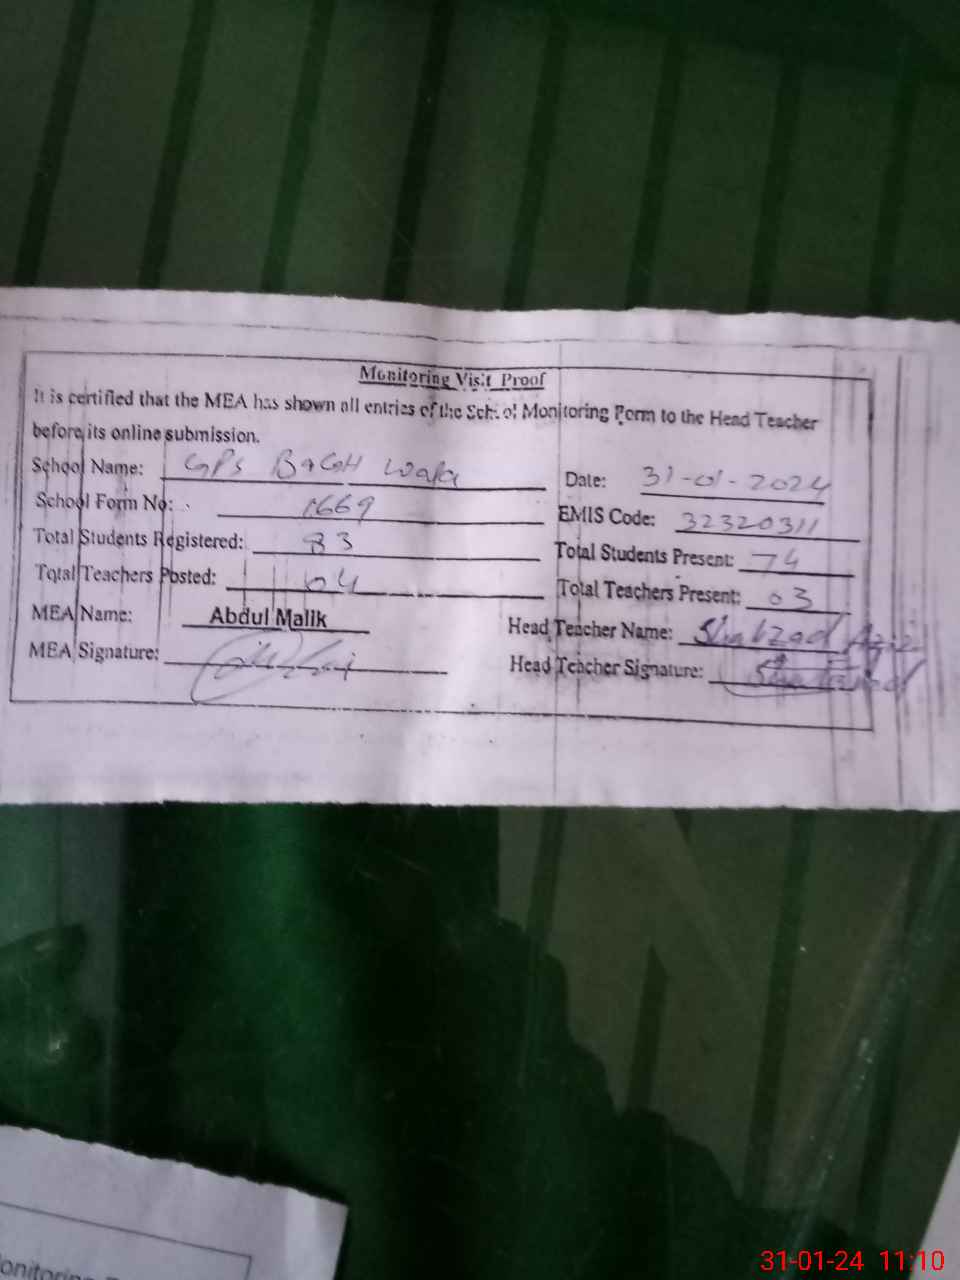 Monitoring Visit Proof
It is certified that the MEA has shown all entries of the School Monitoring Form to the Head Teacher
before its online submission.
School Name: GPS BAGH Wala Date: 31-01-2024
School Form No: 1669 EMIS Code: 32320311
Total Students Registered: 83 Total Students Present: 74
Total Teachers Posted: 04 Total Teachers Present: 03
MEA Name: Abdul Malik Head Teacher Name: Shahzad
MEA Signature: Head Teacher Signature: Shahzad
onitoring
31-01-24 11:10